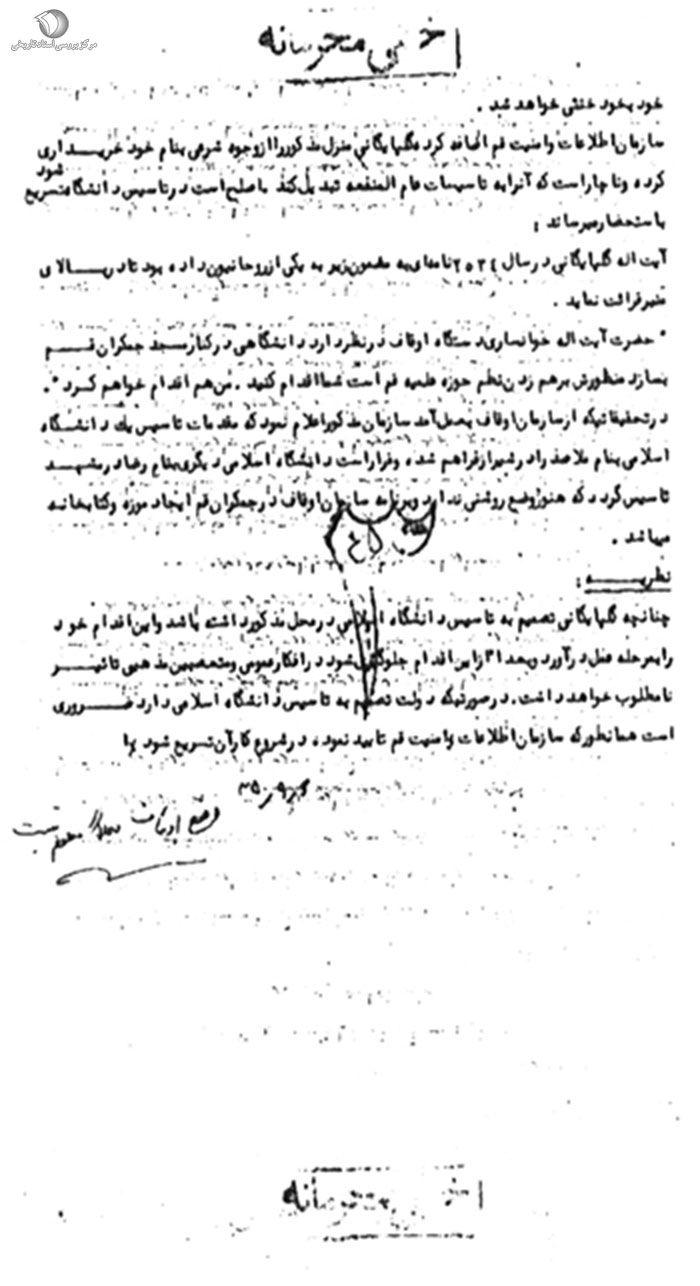 مرکز بررسی اسناد تاریخی
خیلی محرمانه
خود بخود خنثی خواهد شد .
سازمان اطلاعات و امنیت قم اضافه کرده گلپایگانی منزل مذکور را از وجوه شرعی بنام خود خریداری
کرده و ناچار است که آنرا به تاسیسات عام المنفعه تبدیل کند باصلح است در تاسیس دانشگاه تسریع شود
باستحضار میرساند :
آیت اله گلپایگانی در سال ۲۵۳۴ نامه‌ای به مضمون زیر به یکی از روحانیون داده بود تا در بالای
منبر قرائت نماید .
" حضرت آیت اله خوانساری دستگاه اوقاف در نظر دارد دانشگاهی در کنار مسجد جمکران قم
بسازد منظورش برهم زدن نظم حوزه علمیه قم است شما اقدام کنید . من هم اقدام خواهم کرد " .
در تحقیقاتیکه از سازمان اوقاف بعمل آمد سازمان مذکور اعلام نمود که مقدمات تاسیس یک دانشگاه
اسلامی بنام ملاصدرا در شیراز فراهم شده و قرار است دانشگاه اسلامی دیگری بنام رضا در مشهد
تاسیس گردد که هنوز وضع روشنی ندارد و برنامه سازمان اوقاف در جمکران قم ایجاد موزه و کتابخانه
میباشد .
نظریه :
چنانچه گلپایگانی تصمیم به تاسیس دانشگاه اسلامی در محل مذکور داشته باشد و این اقدام خود
را بمرحله عمل درآورد و بعدا از این اقدام جلوگیری شود در افکار عمومی و متعصبین مذهبی تاثیر
نامطلوب خواهد داشت . در صورتیکه دولت تصمیم به تاسیس دانشگاه اسلامی دارد ضروری
است همانطور که سازمان اطلاعات و امنیت قم تایید نموده ، در شروع کار آن تسریع شود
خیلی محرمانه